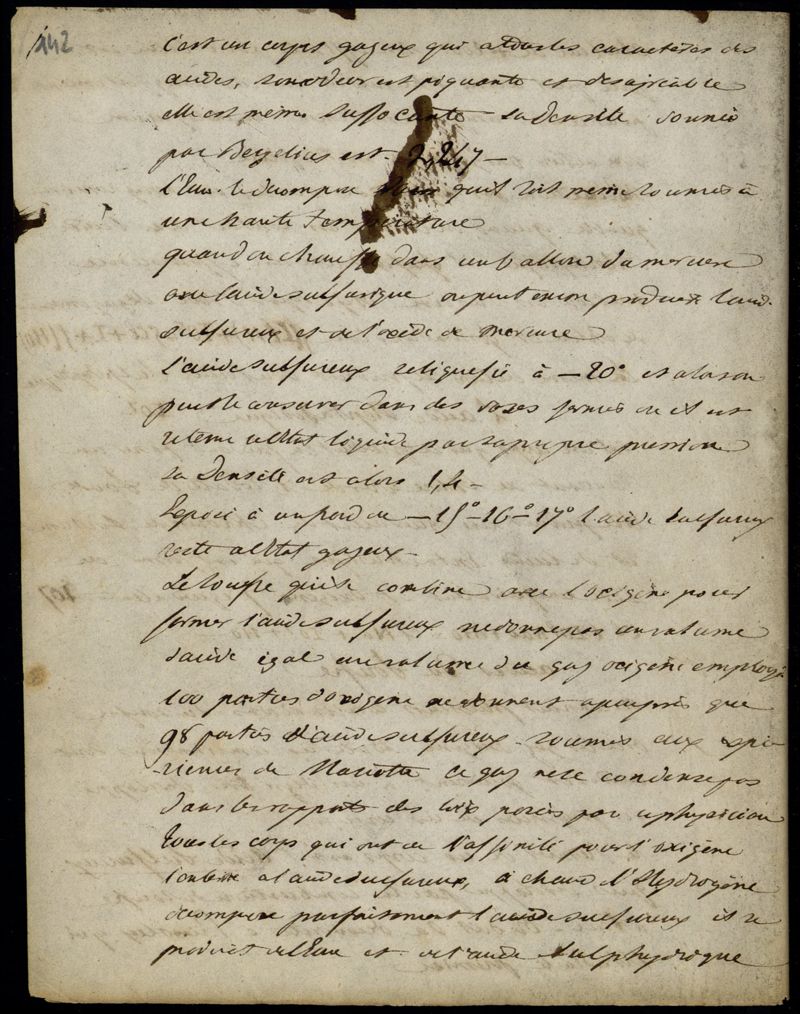 142
c'est un corps gazeux qui a tous les caractères des
acides, son odeur est piquante et désagréable
elle est même suffocante sa densité donnée
par Berzelius est 2,247 —
l'Eau le décompose quil soit même soumis à
une haute température
quand on chauffe dans un ballon du mercure
avec l'acide sulfurique on peut encore produire l'acid.
sulfureux et de l'oxide de mercure
l'acide sulfureux se liquéfie à —20° et alors on
peut le conserver dans des vases fermés ou il est
retenu a l'état liquide par sa propre pression
sa densité est alors 1,4 —
Exposé à un froid de —15° —16° —17° l'acide sulfureux
reste a l'état gazeux —
Le soufre qui se combine avec l'oxigène pour
former l'acide sulfureux ne donne pas un volume
d'acide égal au volume du gaz oxigène employé
100 parties d'oxigène ne donnent apeuprès que
98 parties d'acide sulfureux. soumis aux expé-
-riences de Mariotte ce gaz ne se condense pas
dans les rapports des loix posées par ce physicien
tous les corps qui ont de l'affinité pour l'oxigène
l'enlève a l'acide sulfureux, à chaud l'Hydrogène
décompose parfaitement l'acide sulfureux il se
produit de l'Eau et de l'acide sulphydrique